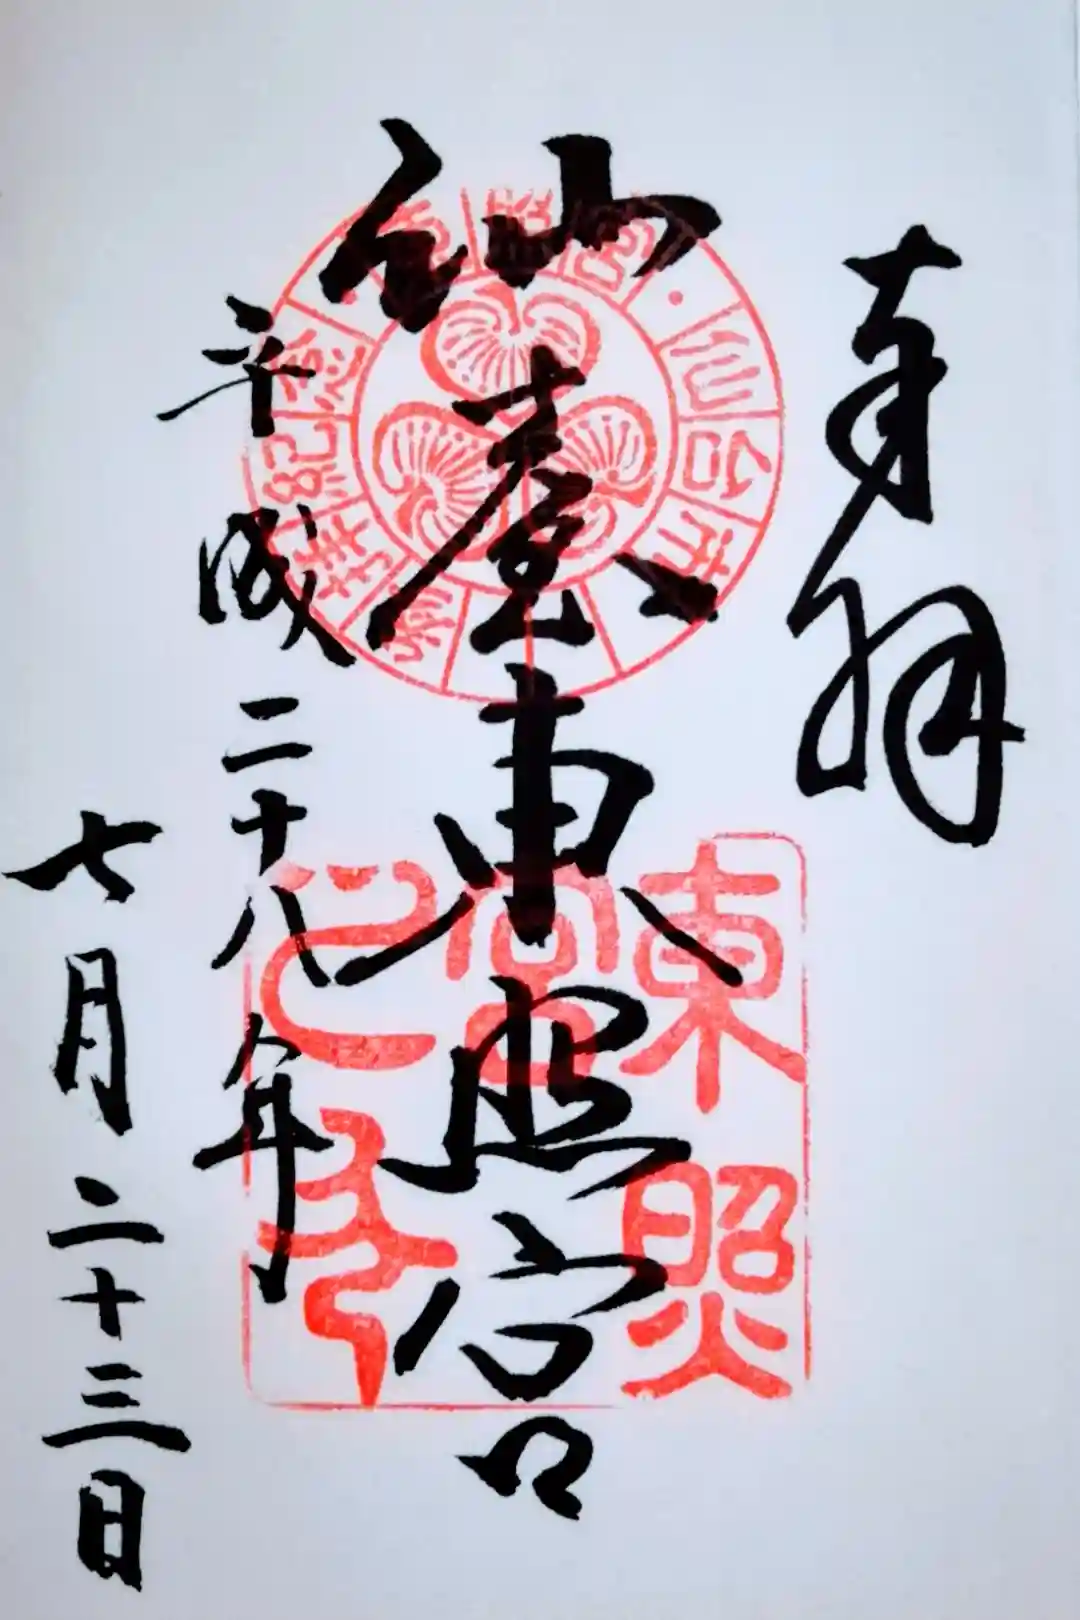 奉拝
仙臺東照宮
平成二十八年
七月二十三日
東照
宮
仙台市